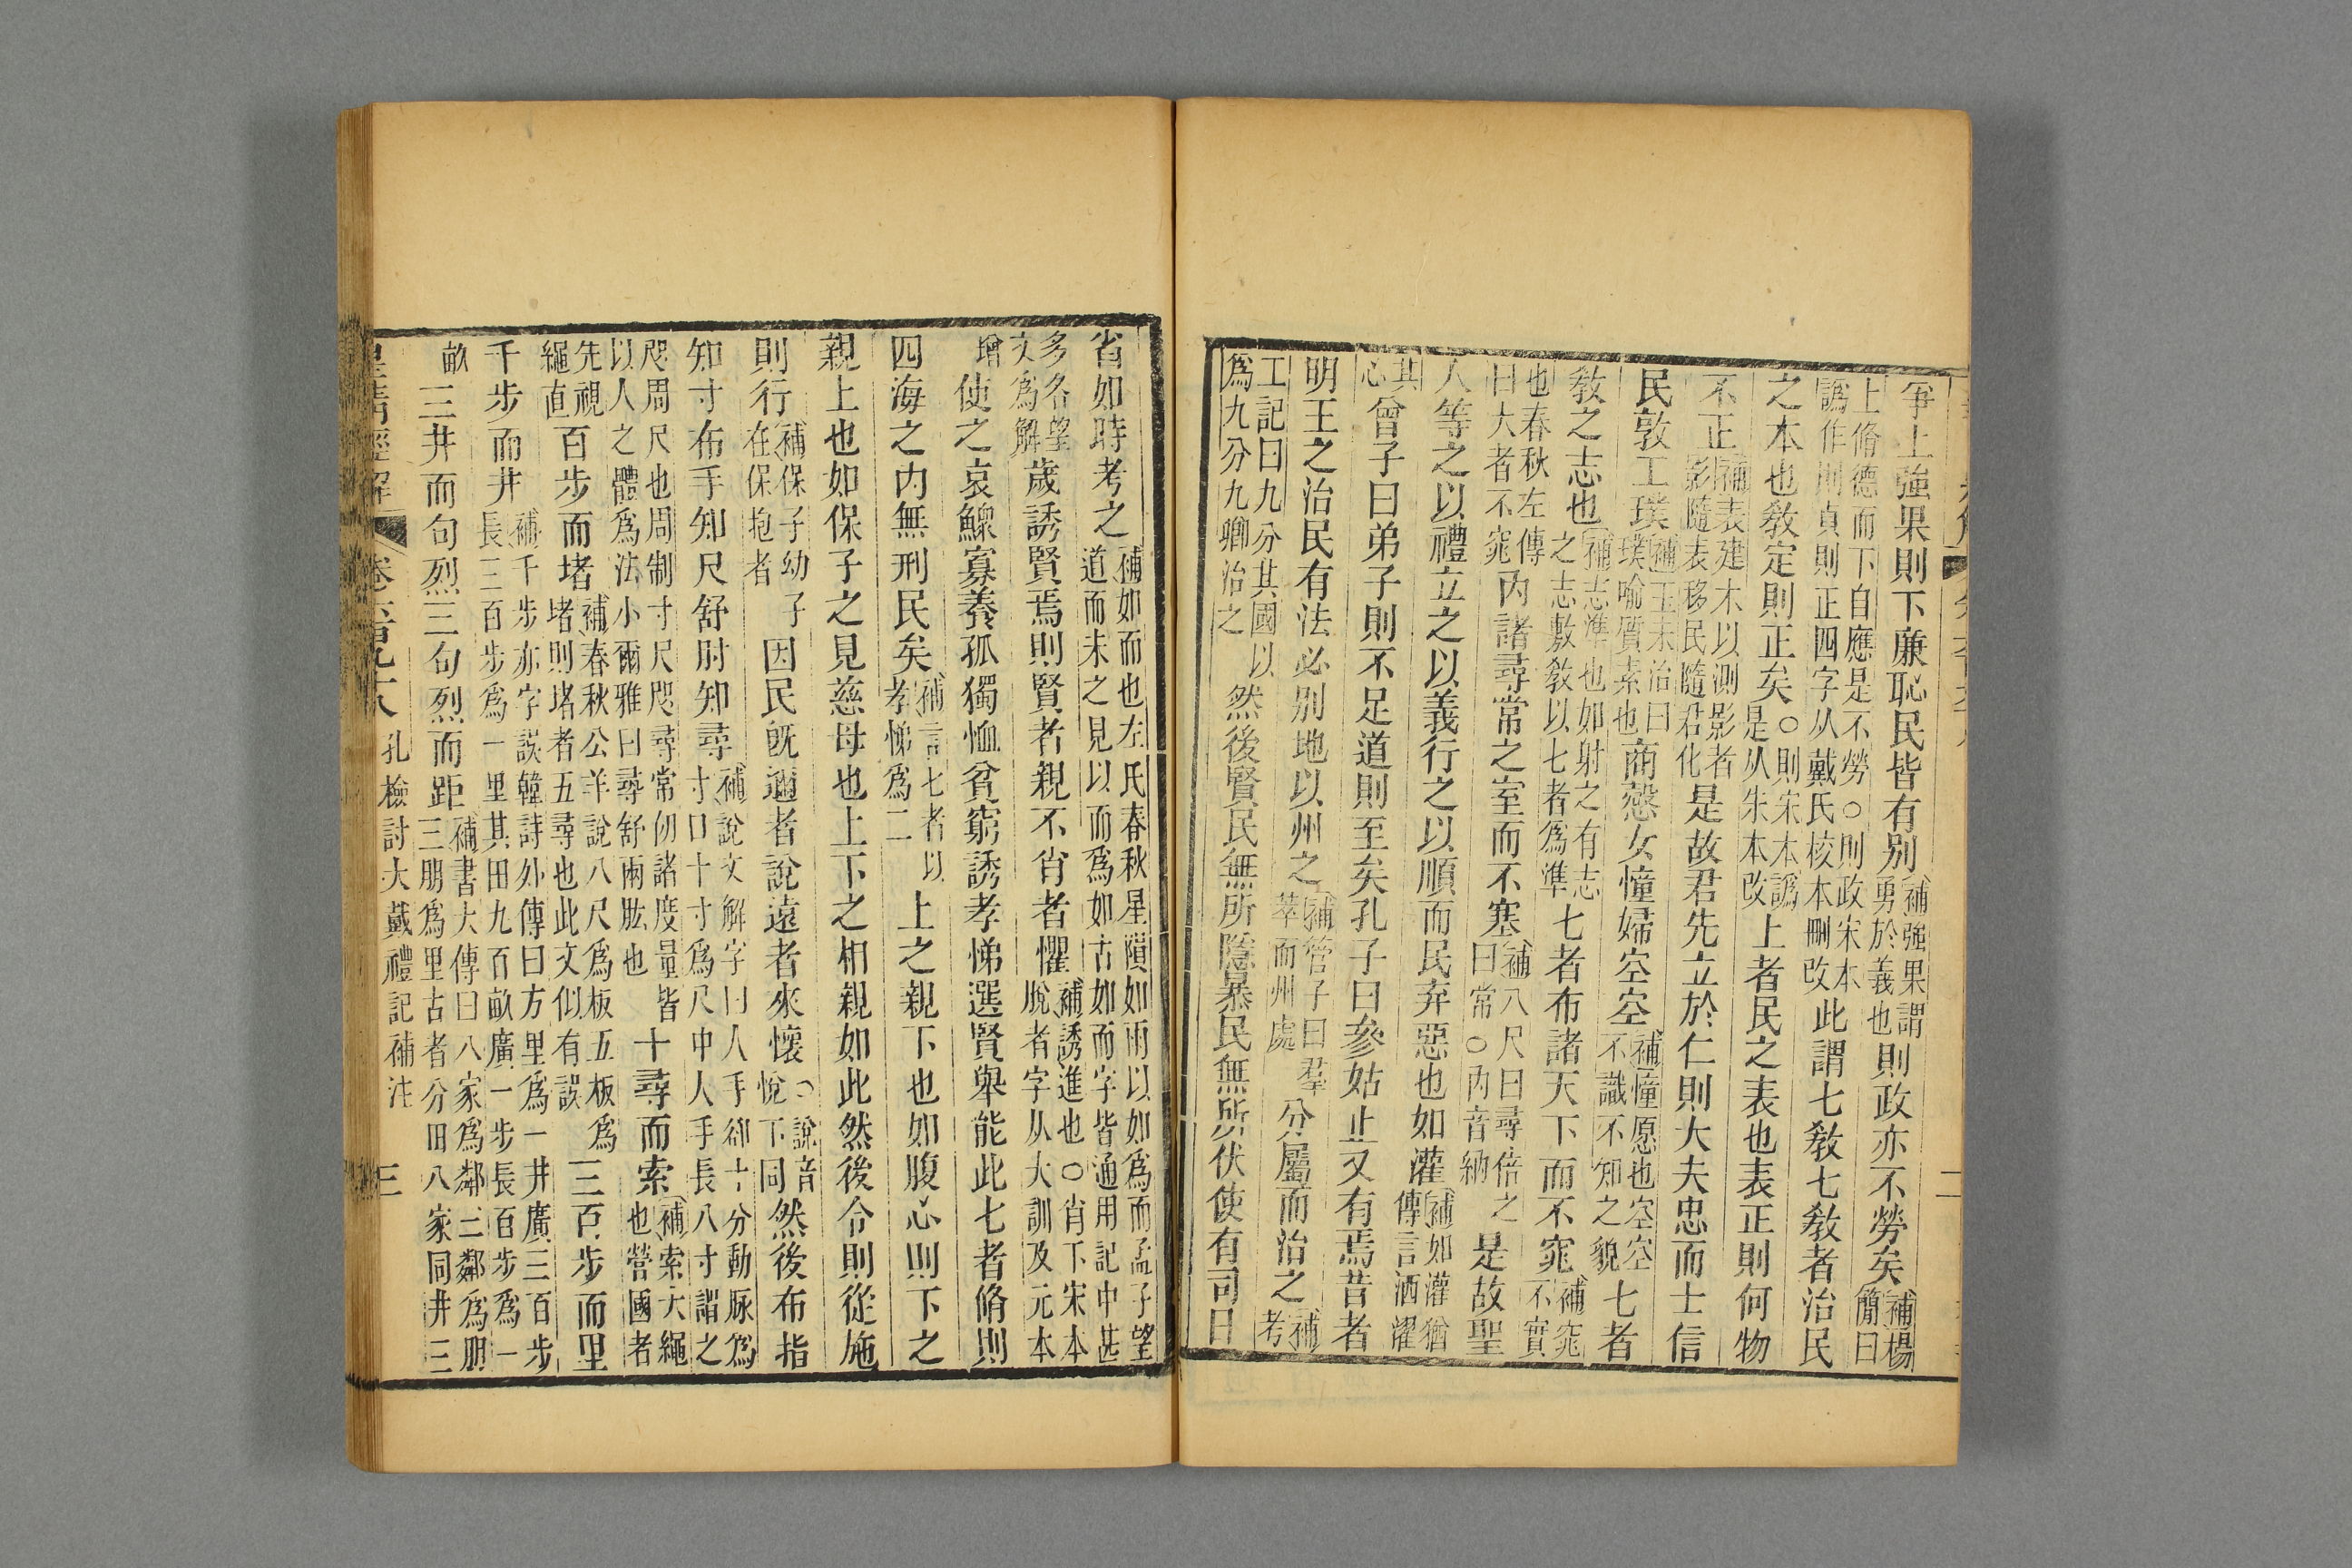 爭上強果則下廉恥民皆有別補強果謂勇於義也則政亦不勞矣補楊簡曰
上脩德而下自應是不勞○則政宋本譌作則貞則正四字从戴氏校本刪改此謂七教七教者治民
之本也教定則正矣○則宋本譌是从朱本改上者民之表也表正則何物
不正補表建木以測影者影隨表移民隨君化是故君先立於仁則大夫忠而士信
民敦工璞補玉未治曰璞喻質素也商愨女憧婦空空補憧愿也空空不識不知之貌七者
教之志也補志準也如射之有志之志敷教以七者爲準七者布諸天下而不窕補窕不實
也春秋左傳曰大者不窕內諸尋常之室而不塞補八尺曰尋倍之曰常○內音納是故聖
人等之以禮立之以義行之以順而民弃惡也如灌補如灌猶傳言洒濯
其心曾子曰弟子則不足道則至矣孔子曰參姑止又有焉昔者
明王之治民有法必別地以州之補管子曰羣萃而州處分屬而治之補考
工記曰九分其國以爲九分九卿治之然後賢民無所隱暴民無所伏使有司日
省如時考之補如而也左氏春秋星隕如雨以如爲而孟子望道而未之見以而爲如古如而字皆通用記中甚
多各望文爲解歲誘賢焉則賢者親不肖者懼補誘進也○肖下宋本脫者字从大訓及元本
增使之哀鰥寡養孤獨恤貧窮誘孝悌選賢舉能此七者脩則
四海之內無刑民矣補言七者以孝悌爲二上之親下也如腹心則下之
親上也如保子之見慈母也上下之相親如此然後令則從施
則行補保子幼子在保抱者因民既邇者說遠者來懷○說音悅下同然後布指
知寸布手知尺舒肘知尋補說文解字曰人手卻十分動脈爲寸口十寸爲尺中人手長八寸謂之
咫周尺也周制寸尺咫尋常仞諸度量皆以人之體爲法小爾雅曰尋舒兩肱也十尋而索補索大繩也營國者
先視繩直百步而堵補春秋公羊說八尺爲板五板爲堵則堵者五尋也此文似有誤三百步而里
千步而井補千步亦字誤韓詩外傳曰方里爲一井廣三百步長三百步爲一里其田九百畝廣一步長百步爲一
畝三井而句烈三句烈而距補書大傳曰八家爲鄰三鄰爲朋三朋爲里古者分田八家同井三
皇清經解 卷六百九十八 孔檢討大戴禮記補注 三